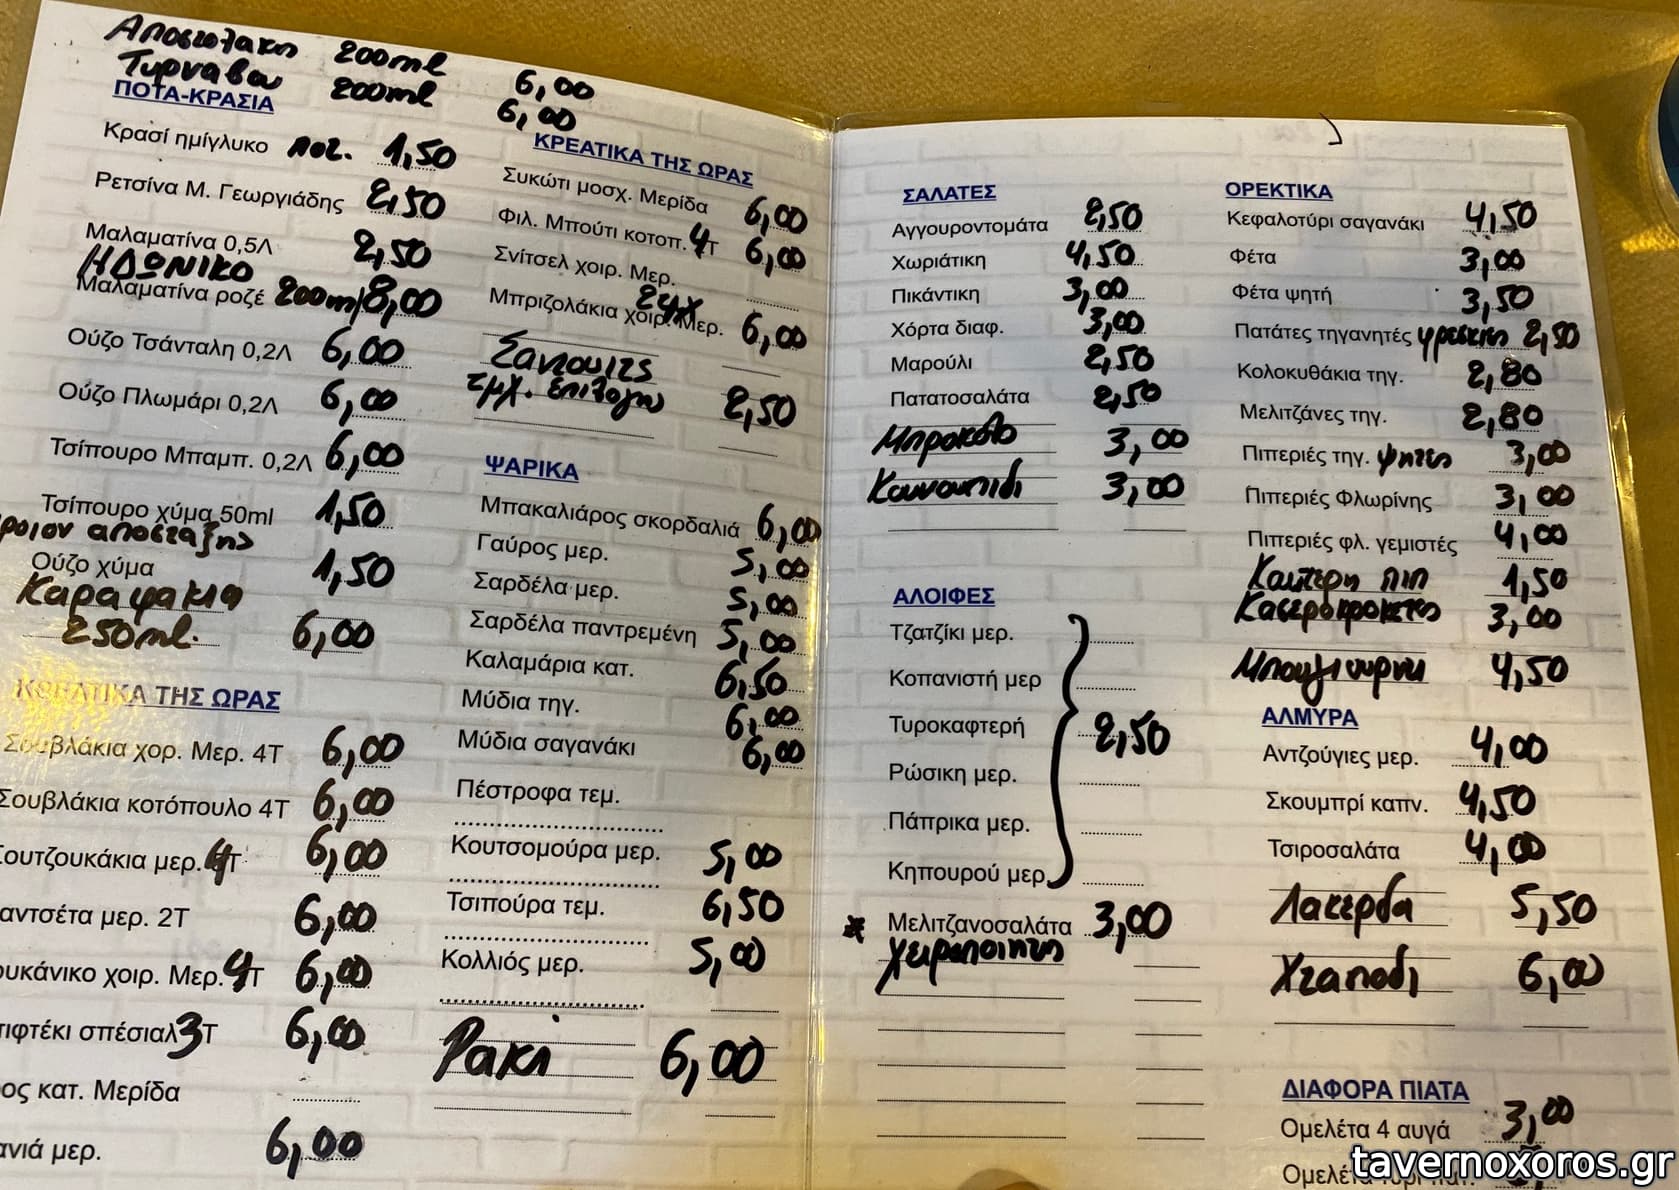 Αποστολακη 200ml 6,00
Τυρναβου 200ml 6,00
ΠΟΤΑ-ΚΡΑΣΙΑ
Κρασί ημίγλυκο ποτ. 1,50
Ρετσίνα Μ. Γεωργιάδης 2,50
Μαλαματίνα 0,5Λ 2,50
ΗΔΩΝΙΚΟ
Μαλαματίνα ροζέ 200ml 8,00
Ούζο Τσάνταλη 0,2Λ 6,00
Ούζο Πλωμάρι 0,2Λ 6,00
Τσίπουρο Μπαμπ. 0,2Λ 6,00
Τσίπουρο χύμα 50ml 1,50
ροιον αποσταξης
Ούζο χύμα 1,50
Καραφακια
250ml. 6,00
ΚΡΕΑΤΙΚΑ ΤΗΣ ΩΡΑΣ
Σουβλάκια χορ. Μερ. 4Τ 6,00
Σουβλάκια κοτόπουλο 4Τ 6,00
Σουτζουκάκια μερ. 4Τ 6,00
αντσέτα μερ. 2Τ 6,00
ουκάνικο χοιρ. Μερ. 4Τ 6,00
ιφτέκι σπέσιαλ 3Τ 6,00
ος κατ. Μερίδα
ανιά μερ. 6,00
ΚΡΕΑΤΙΚΑ ΤΗΣ ΩΡΑΣ
Συκώτι μοσχ. Μερίδα 6,00
Φιλ. Μπούτι κοτοπ. 4Τ 6,00
Σνίτσελ χοιρ. Μερ.
2τμχ
Μπριζολάκια χοιρ. Μερ. 6,00
Σαντουιτς
τμχ. επιλογη 2,50
ΨΑΡΙΚΑ
Μπακαλιάρος σκορδαλιά 6,00
Γαύρος μερ. 5,00
Σαρδέλα μερ. 5,00
Σαρδέλα παντρεμένη 5,00
Καλαμάρια κατ. 6,50
Μύδια τηγ. 6,00
Μύδια σαγανάκι 6,00
Πέστροφα τεμ.
Κουτσομούρα μερ. 5,00
Τσιπούρα τεμ. 6,50
Κολλιός μερ. 5,00
Ρακι 6,00
ΣΑΛΑΤΕΣ
Αγγουροντομάτα 2,50
Χωριάτικη 4,50
Πικάντικη 3,00
Χόρτα διαφ. 3,00
Μαρούλι 2,50
Πατατοσαλάτα 2,50
Μπροκολο 3,00
Κουνουπιδι 3,00
ΑΛΟΙΦΕΣ
Τζατζίκι μερ.
Κοπανιστή μερ
Τυροκαφτερή 2,50
Ρώσικη μερ.
Πάπρικα μερ.
Κηπουρού μερ.
Μελιτζανοσαλάτα 3,00
χειροποιητη
ΟΡΕΚΤΙΚΑ
Κεφαλοτύρι σαγανάκι 4,50
Φέτα 3,00
Φέτα ψητή 3,50
Πατάτες τηγανητές φρεσκιες 2,50
Κολοκυθάκια τηγ. 2,80
Μελιτζάνες τηγ. 2,80
Πιπεριές τηγ. ψητες 3,00
Πιπεριές Φλωρίνης 3,00
Πιπεριές φλ. γεμιστές 4,00
Καυτερη πιπ 1,50
Κασεροκροκετες 3,00
Μπουγιουρντι 4,50
ΑΛΜΥΡΑ
Αντζούγιες μερ. 4,00
Σκουμπρί καπν. 4,50
Τσιροσαλάτα 4,00
Λακερδα 5,50
Χταποδι 6,00
ΔΙΑΦΟΡΑ ΠΙΑΤΑ
Ομελέτα 4 αυγά 3,00
tavernoxoros.gr